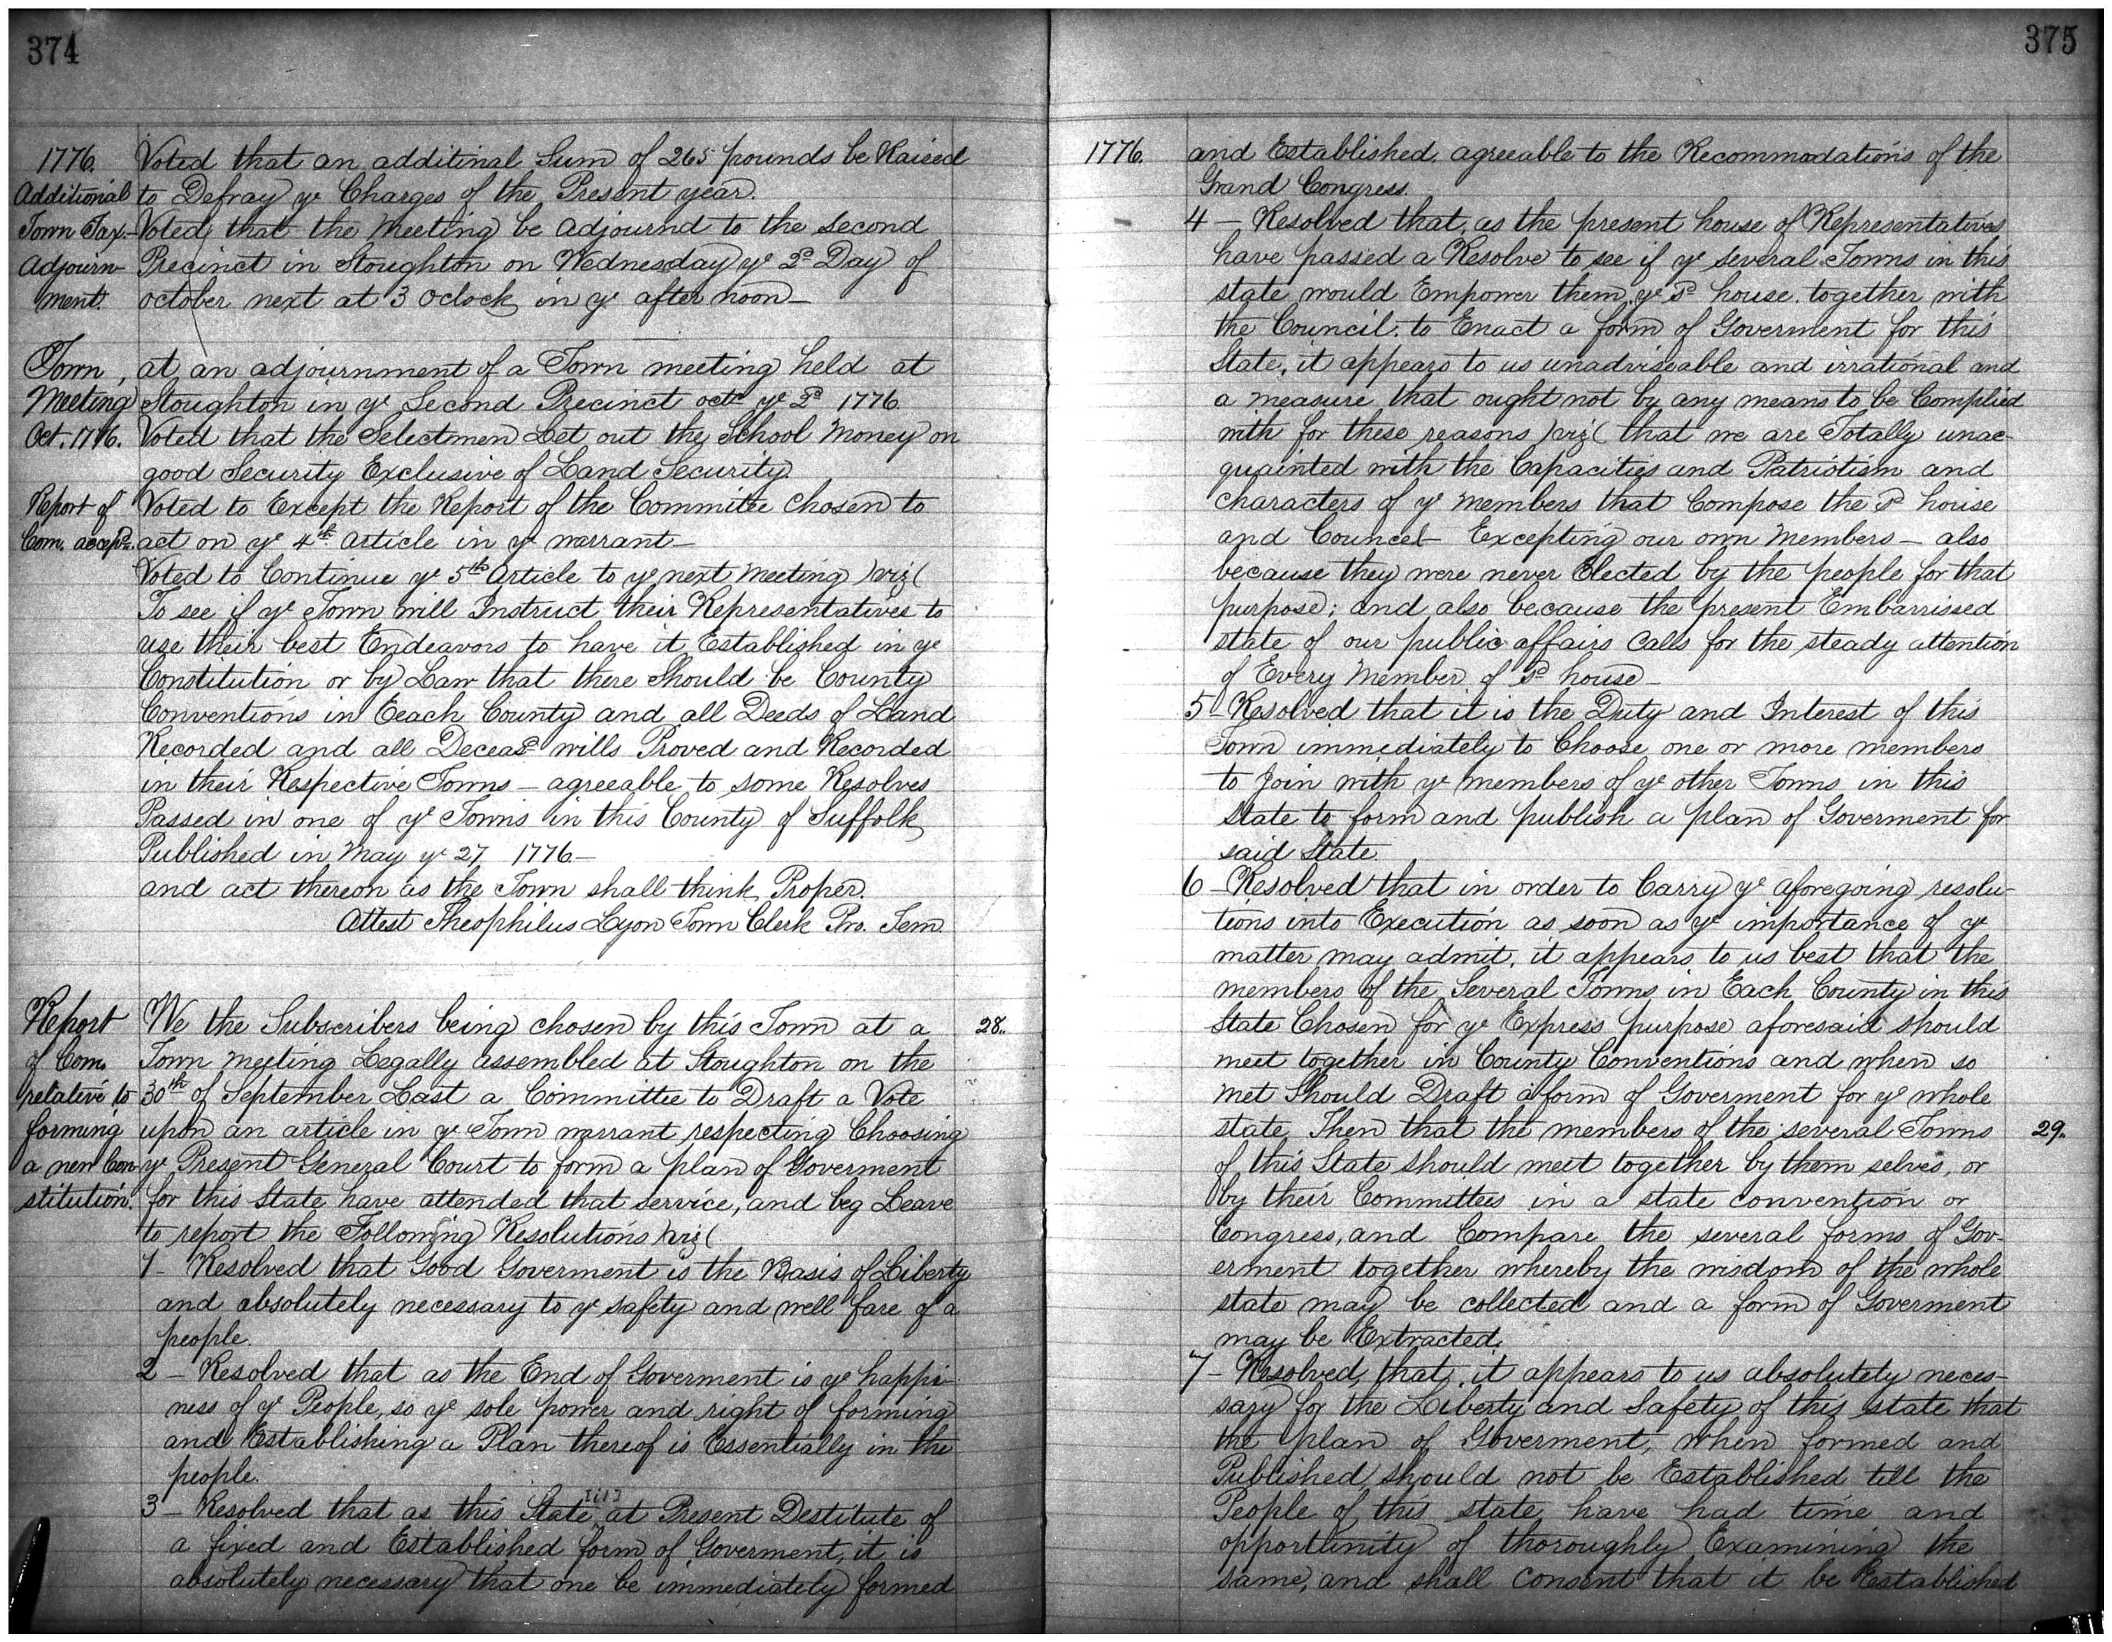 374
1776.
Additional
Town Tax.
Adjourn-
ment.
Voted that an additinal Sum of 265 pounds be Raised
to Defray ye Charges of the Present year.
Voted that the Meeting be adjournd to the second
Precinct in Stoughton on Wednesday ye 2d Day of
october next at 3 oclock in ye after noon—
Town
Meeting
Oct. 1776.
at an adjournment of a Town meeting held at
Stoughton in ye Second Precinct octr ye 2d 1776.
Voted that the Selectmen Let out the School Money on
good Security Exclusive of Land Security.
Report of
Com. accepd.
Voted to Except the Report of the Committee chosen to
act on ye 4th article in ye warrant—
Voted to Continue ye 5th Article to ye next Meeting )viz(
To see if ye Town will Instruct their Representatives to
use their best Endeavors to have it Established in ye
Constitution or by Law that there Should be County
Conventions in Eeach County and all Deeds of Land
Recorded and all Deceasd wills Proved and Recorded
in their Respective Towns — agreeable to some Resolves
Passed in one of ye Towns in this County of Suffolk
Published in May ye 27 1776—
and act thereon as the Town shall think Proper.
Attest Theophilus Lyon Town Clerk Pro. Tem.
Report
of Com.
relative to
forming
a new Con-
stitution.
We the Subscribers being chosen by this Town at a
28.
Town meeting Legally assembled at Stoughton on the
30th of September Last a Committee to Draft a Vote
upon an article in ye Town warrant respecting Choosing
ye Present General Court to form a plan of Goverment
for this State have attended that service, and beg Leave
to report the Following Resolutions )viz(
1 - Resolved that Good Goverment is the Basis of Liberty
and absolutely necessary to ye safety and well fare of a
people.
2 — Resolved that as the End of Goverment is ye happi-
ness of ye People, so ye sole power and right of forming
and Establishing a Plan thereof is Essentially in the
people.
[is]
3 — Resolved that as this State at Present Destitute of
a fixed and Established form of Goverment, it is
absolutely necessary that one be immediately formed
375
1776.
and Established, agreeable to the Recommondations of the
Grand Congress.
4 — Resolved that, as the present house of Representatives
have passed a Resolve to see if ye several Towns in this
state would Empower them, ye sd house, together with
the Council, to Enact a form of Goverment for this
State, it appears to us unadviseable and irrational and
a measure that ought not by any means to be Complied
with for these reasons )viz( that we are Totally unac-
quainted with the Capacities and Patriotism and
characters of ye members that Compose the sd house
and Councel — Excepting our own Members — also
because they were never Elected by the people for that
purpose; and also because the present Embarrissed
state of our public affairs calls for the steady attention
of Every Member of sd house—
5 — Resolved that it is the Duty and Interest of this
Town immediately to Choose one or more members
to Join with ye members of ye other Towns in this
State to form and publish a plan of Goverment for
said State.
6 — Resolved that in order to Carry ye aforegoing resolu-
tions into Execution as soon as ye importance of ye
matter may admit, it appears to us best that the
members of the Several Towns in Each County in this
State Chosen for ye Express purpose aforesaid should
meet together in County Conventions and when so
met Should Draft a form of Goverment for ye whole
state Then that the members of the several Towns
29.
of this State should meet together by them selves, or
by their Committees in a state convention or
Congress, and Compare the several forms of Gov-
erment together whereby the wisdom of the whole
state may be collected and a form of Goverment
may be Extracted.
7 — Resolved, that it appears to us absolutely neces-
sary for the Liberty and Safety of this state that
the plan of Goverment, when formed and
Published should not be Established till the
People of this state have had time and
opportunity of thoroughly Examining the
same, and shall consent that it be Established